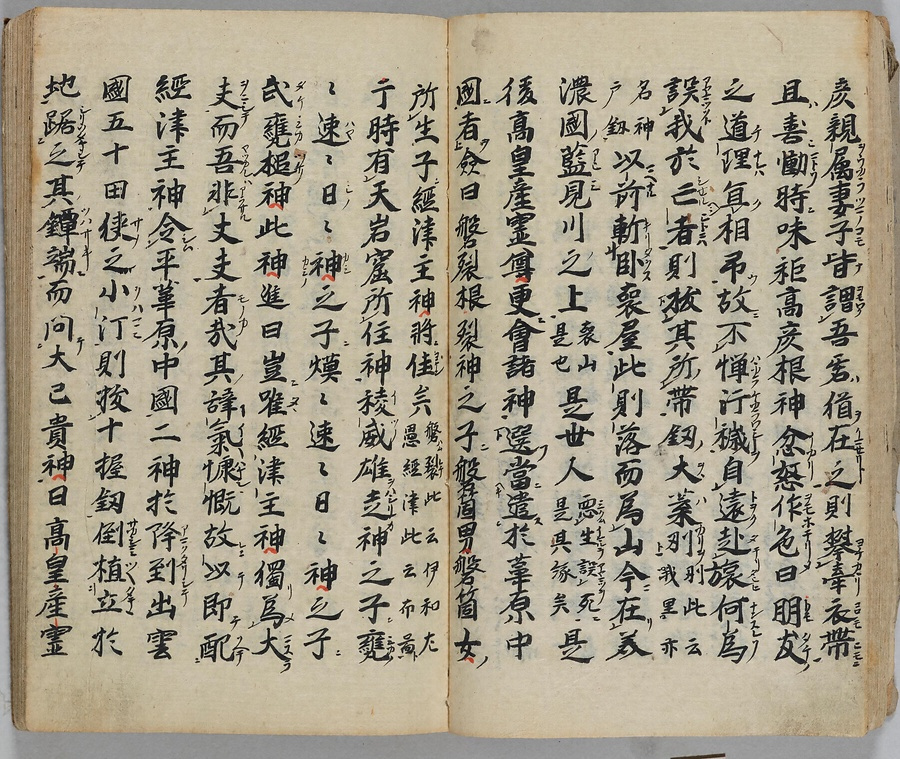 彦親属妻子皆謂吾君猶在之則攀牽衣帶
且喜慟時味耜高彦根神忿怒作色曰朋友
之道理宜相吊故不憚汙穢自遠赴哀何為
誤我於亡者則拔其所帶釼大葉刈刈此云我里亦
名神戸釼以前斬卧喪屋此則落而為山今在美
濃國藍見川之上喪山是也是世人惡生誤死是其縁矣是
後高皇産霊尊更會諸神選當遣於葦原中
國者僉曰磐裂根裂神之子磐筒男磐筒女
所生子經津主神將佳矣磐裂此云伊和 經津此云布
于時有天岩窟所住神稜威雄走神之子甕
〻速〻日〻神之子熯〻速〻日〻神之子
武甕槌神此神進曰豈唯經津主神獨為大
夫而吾非丈夫者哉其辞氣慷慨故以即配
經津主神令平葦原中國二神於降到出雲
國五十田狹之小汀則拔十握釼倒植立於
地踞之其鐔端而問大己貴神曰高皇産霊